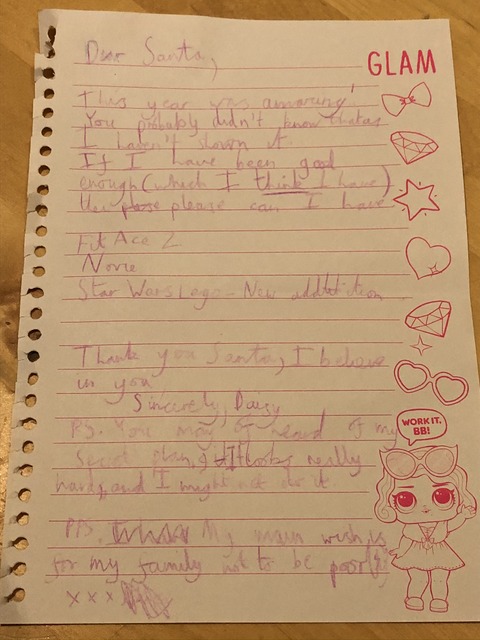 Dear Santa,
GLAM
This year was amazing!
You probably didn't know that as
I haven't shown it
If I have been good
enough (which I think I have)
please can I have
Fit Ace 2
Star Wars Lego - New addition
Thank you Santa, I believe
in you
Sincerely, Daisy
PS. You may of heard of my
secret plan, it looks really
hard, and I might not do it
WORK IT,
BB!
PPS. My main wish is
for my family not to be poorly
x x x